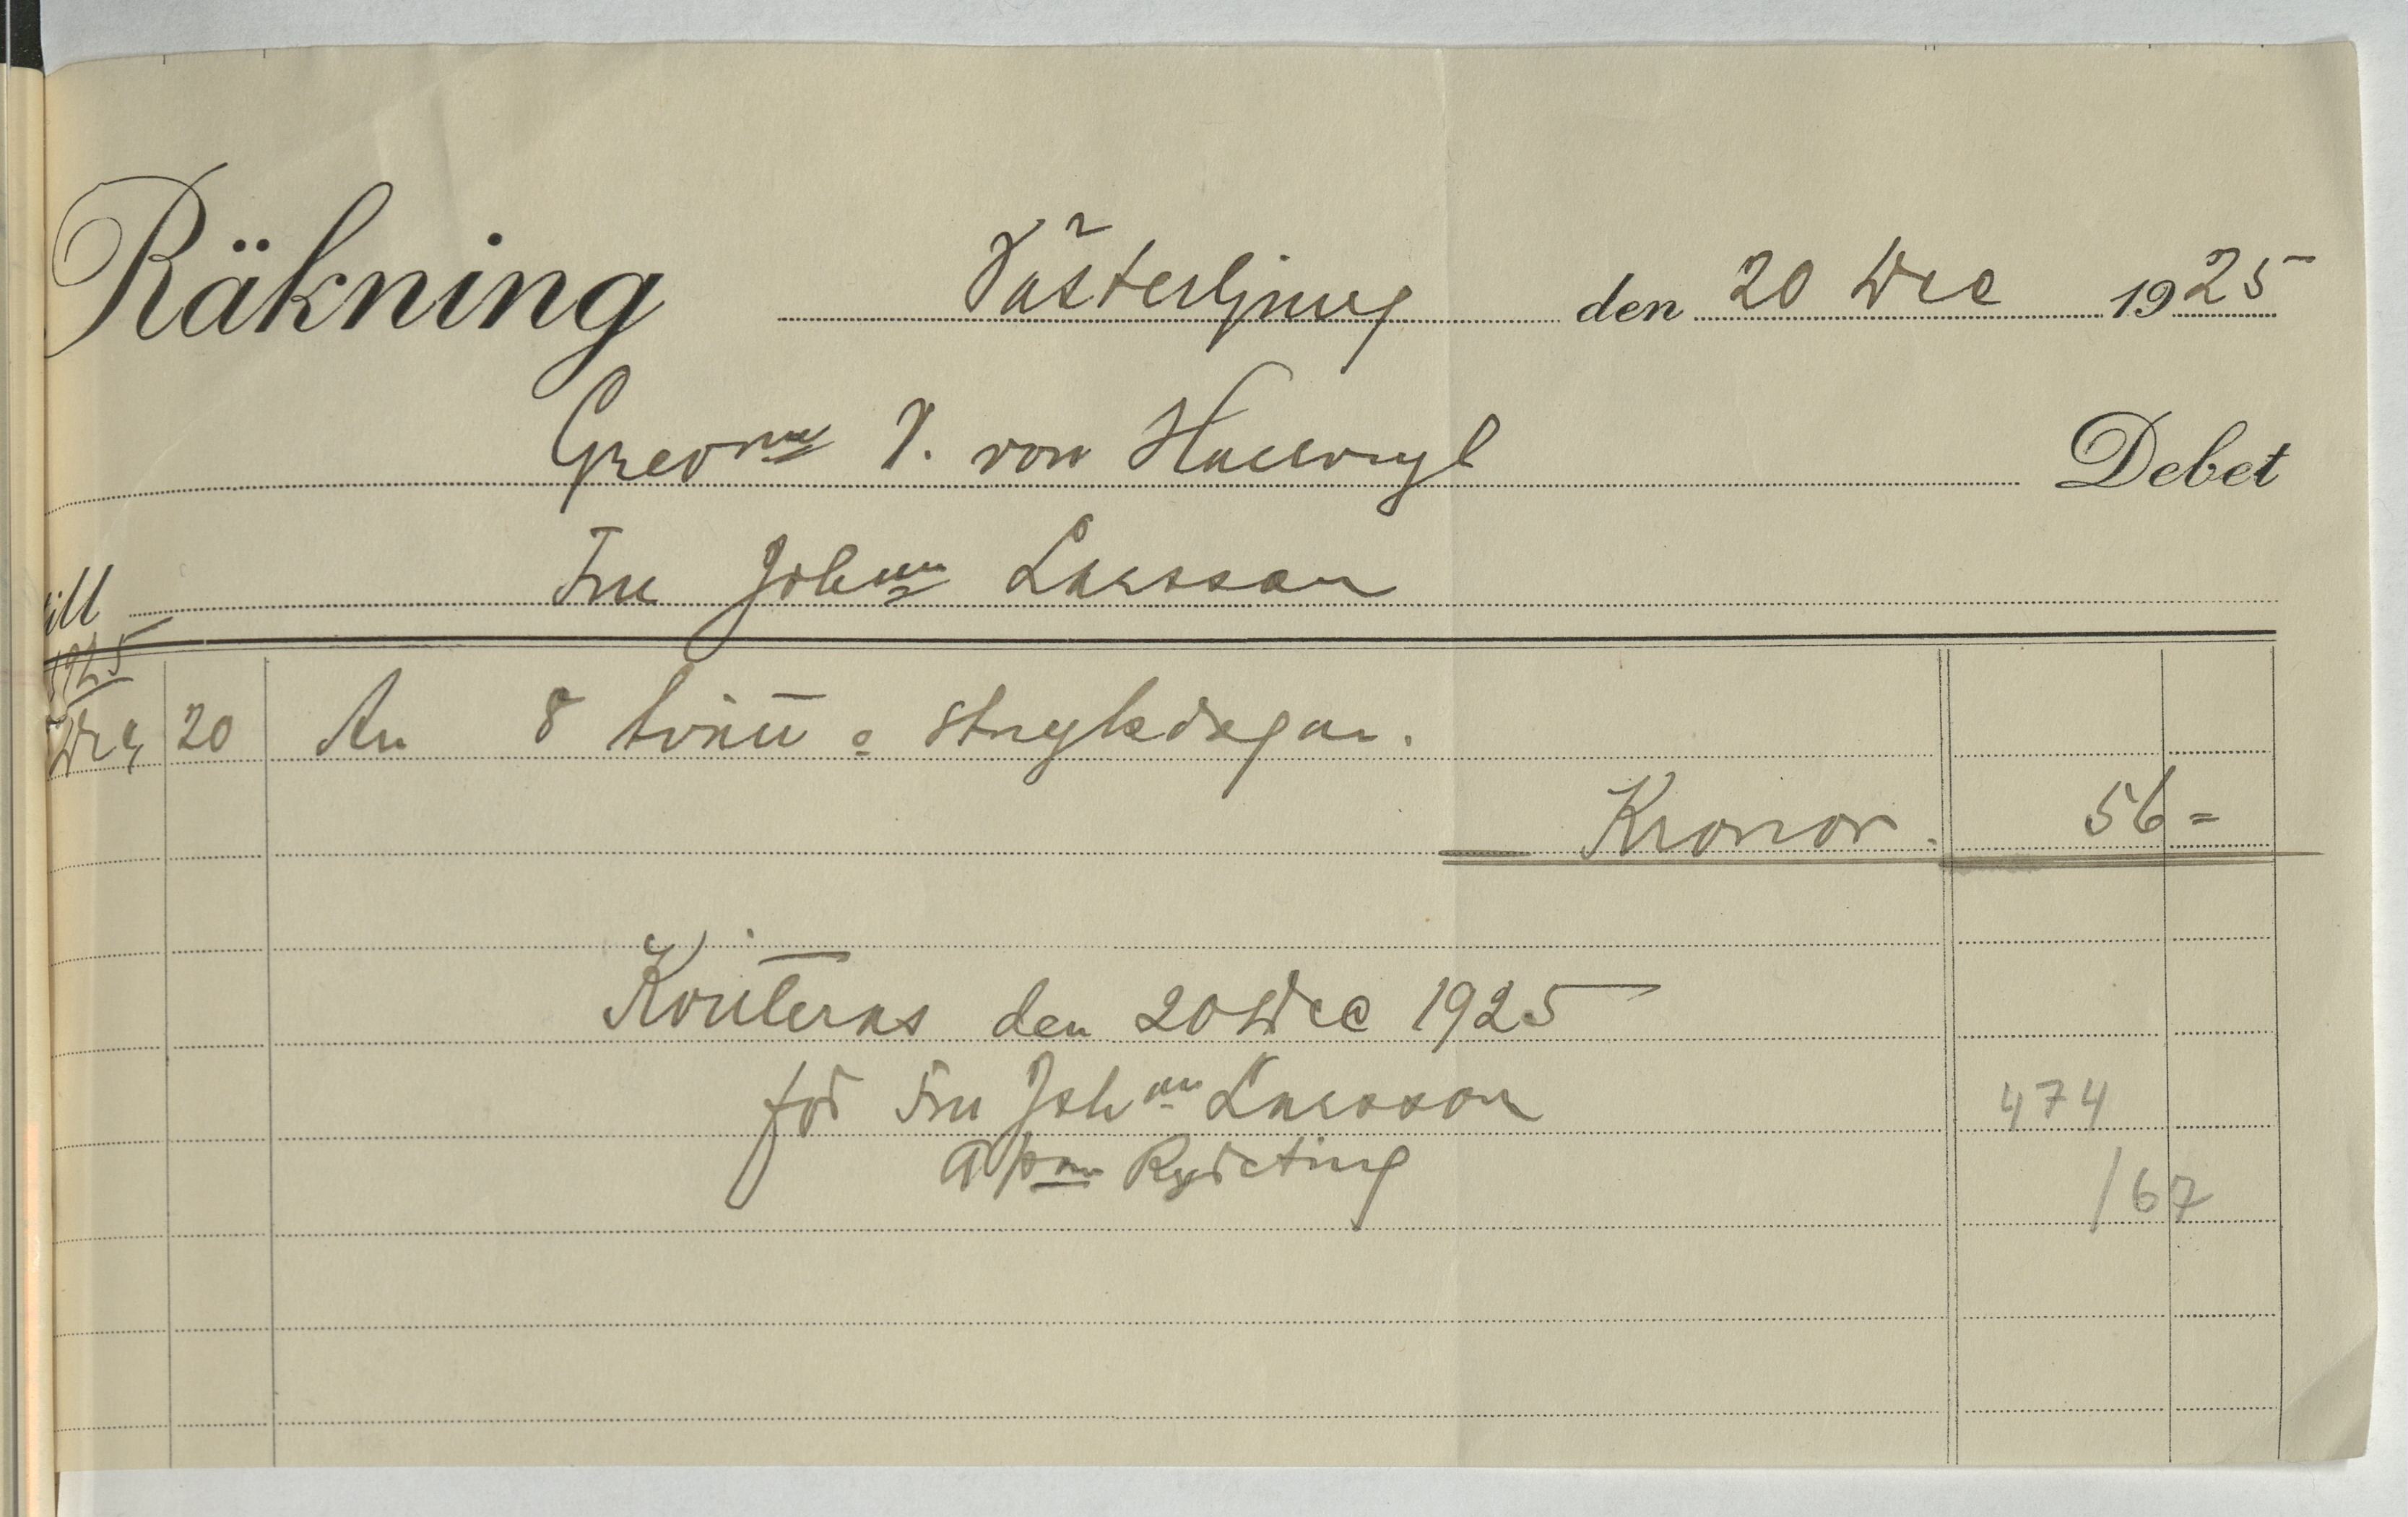 Räkning Västerljung den 20 Dec 1925
Grevinne V. von Hallwyl Debet
till Fru Johan Larsson
1925
Dec 20 An 8 tvätt o strykdagar.
Kronor. 56 =
Kvitteras den 20 Dec 1925
för Fru Johan Larsson
474
/67